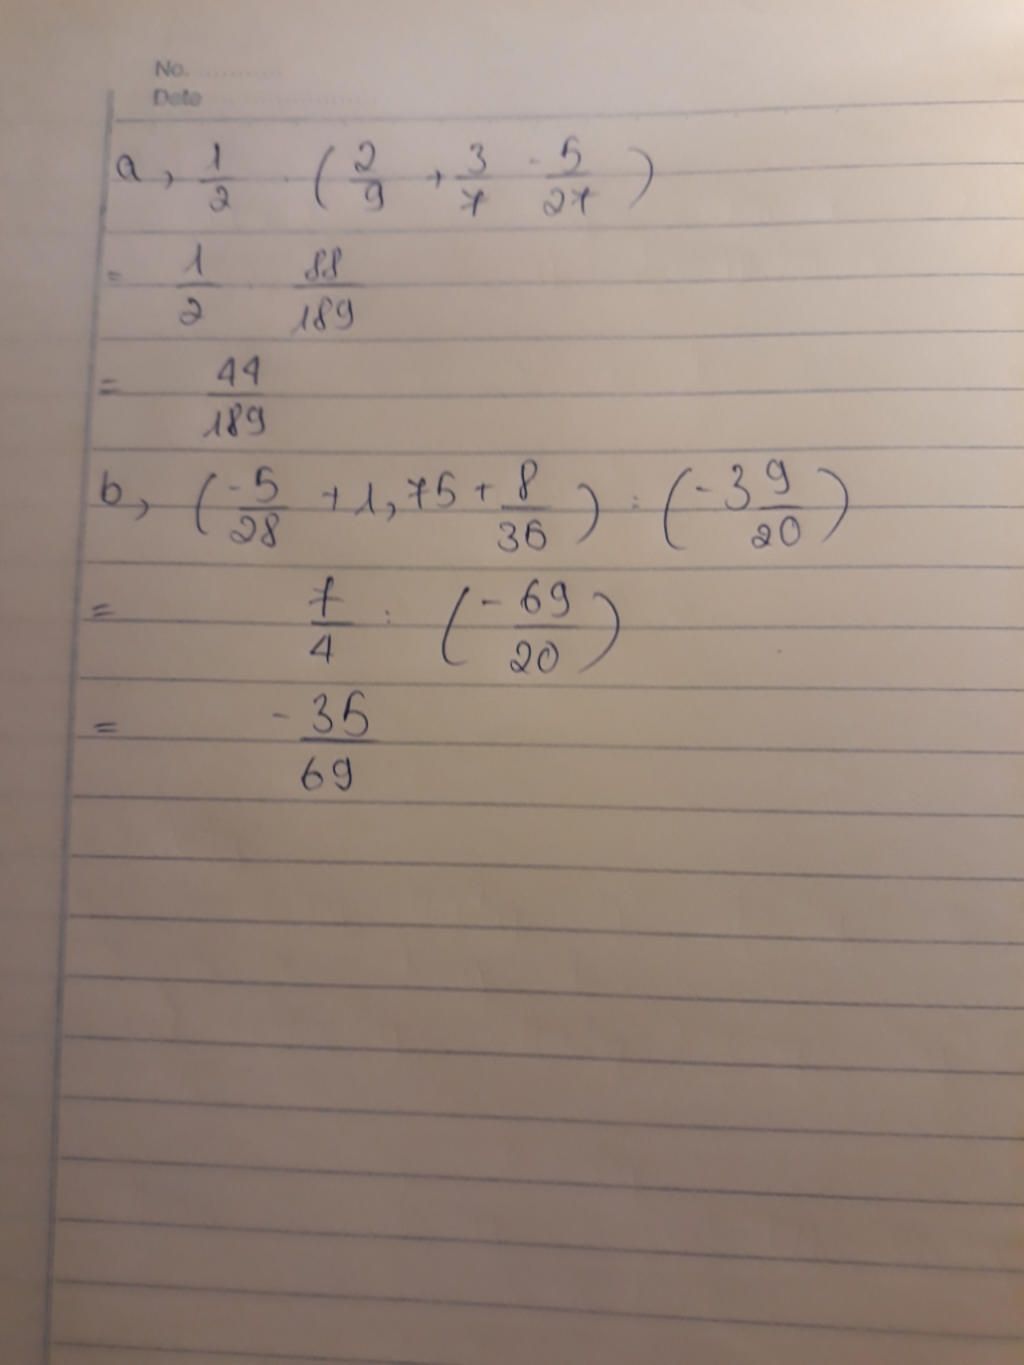 No.
Date
a, 1/2 . (2/9 + 3/7 - 5/27)
= 1/2 . 88/189
= 44/189
b, (-5/28 + 1,75 + 8/35) : (-3 9/20)
= 7/4 : (-69/20)
= -35/69